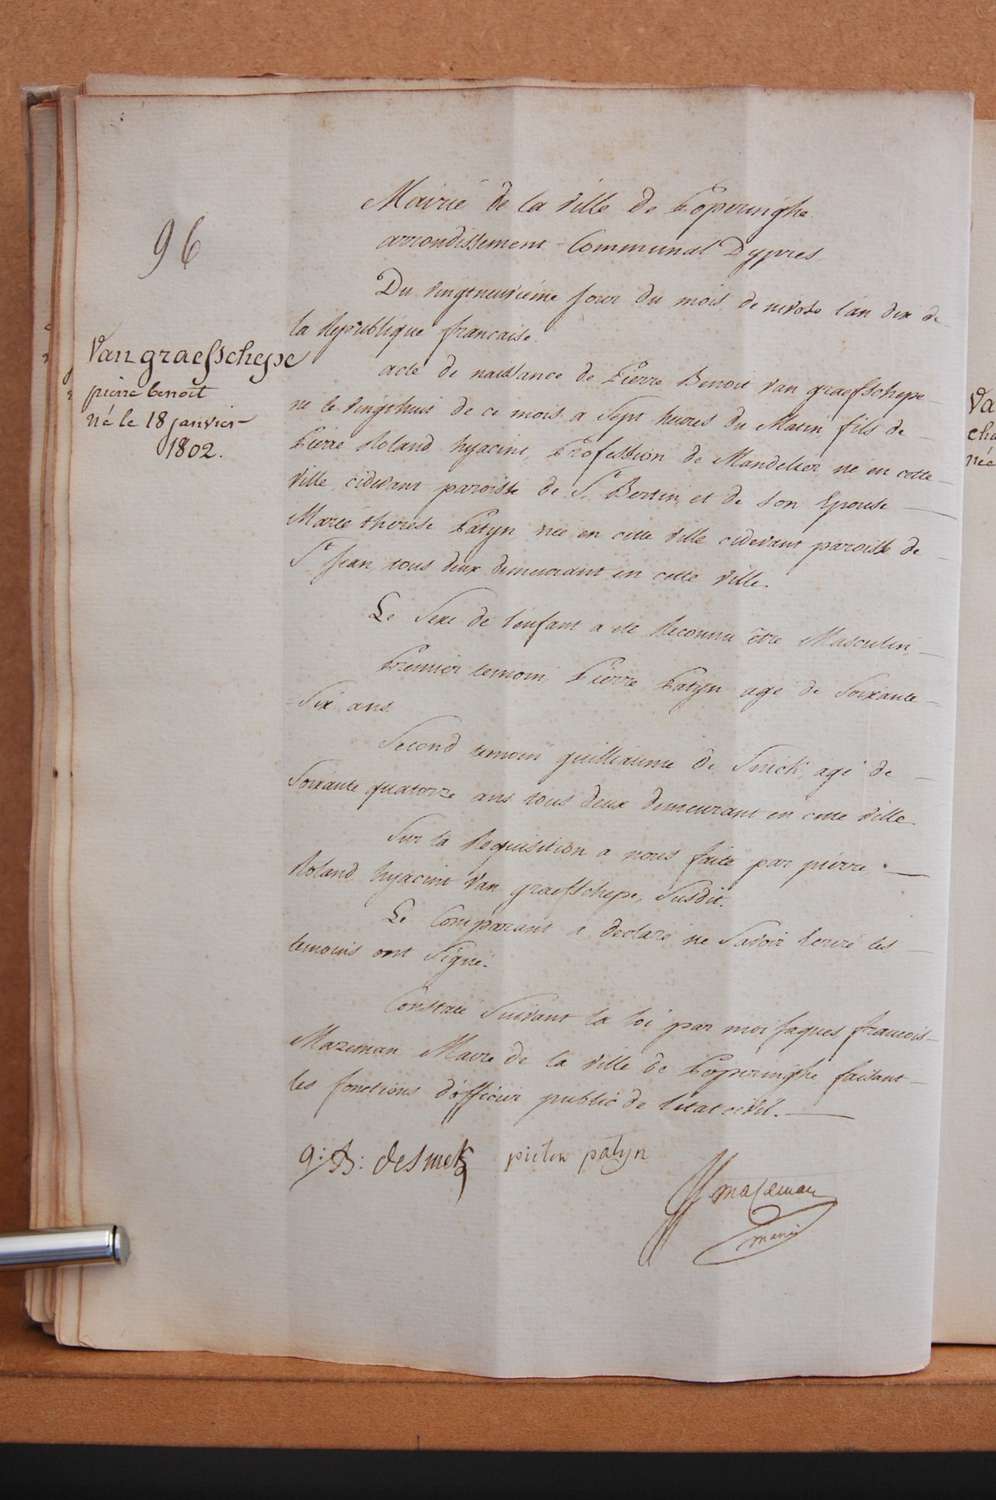 96
Van graefschepe
pierre benoit
né le 18 janvier
1802.
Mairie de la ville de Poperinghe
arrondissement Communal Dypres
Du vingtneuvieme jour du mois de nivose l'an dix de
la Republique francaise.
acte de naissance de Pierre Benoit Van graefschepe
né le vingthuit de ce mois a Sept heures du Matin fils de
Pierre Roland hyacint, Profession de Mandelier né en cette
ville cidevant paroisse de St. Bertin et de Son Epouse
Marie therese Patyn née en cette ville cidevant paroisse de
St Jean, tous deux demeurant en cette ville.
Le Sexe de l'enfant a été Reconnu être Masculin.
Premier temoin Pierre Patyn agé de Soixante
Six ans.
Second temoin guilliaume de Smidt, agé de
Soixante quatorze ans tous deux demeurant en cette ville
Sur la Requisition a nous faite par pierre
Roland hyacint Van graefschepe, Susdit.
Le Comparant a declaré ne Savoir Ecrire les
temoins ont Signé.
Constaté Suivant la loi par moi jaques francois
Mazeman Maire de la ville de Poperinghe faisant
les fonctions d'officier public de l'etat civil.
g: B: desmet
pieter patyn
mazeman
maire
Va
che
née